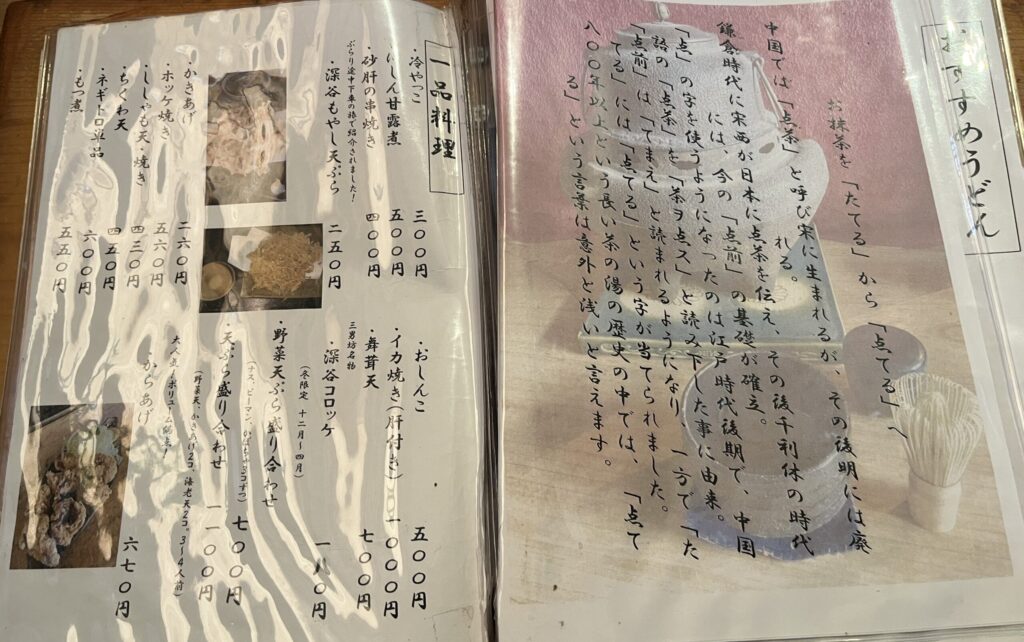 おすすめうどん
お抹茶を「たてる」から「点てる」へ
中国では「点茶」と呼び宋に生まれるが、その後明には廃
れる。
鎌倉時代に宋西が日本に点茶を伝え、その後千利休の時代
には、今の「点前」の基礎が確立。
「点」の字を使うようになったのは江戸時代後期で、中国
語の「点茶」を「茶ヲ点ス」と読み下した事に由来。
「点前」は「てまえ」と読まれるようになり、一方で「た
てる」には「点てる」という字が当てられました。
八〇〇年以上という長い茶の湯の歴史の中では、「点て
る」という言葉は意外と浅いと言えます。
一品料理
・冷やっこ 三〇〇円
・にしん甘露煮 五〇〇円
・砂肝の串焼き 四〇〇円
ぶらり途中下車の旅で紹介されました！
・深谷もやし天ぷら 二五〇円
・かきあげ 二六〇円
・ホッケ焼き 五六〇円
・ししゃも天・焼き 四三〇円
・ちくわ天 四五〇円
・ネギトロ単品 六〇〇円
・もつ煮 五五〇円
・おしんこ 五〇〇円
・イカ焼き(肝付き) 一〇〇〇円
・舞茸天 七〇〇円
三男坊名物
・深谷コロッケ 一八〇円
(冬限定 十二月〜四月)
・野菜天ぷら盛り合わせ 七〇〇円
(ナス、ピーマン、かぼちゃ3コずつ)
・天ぷら盛り合わせ 一一〇〇円
(野菜天、かきあげ2コ、海老天2コ。3〜4人前)
大人気！ボリューム満点！
・からあげ 六七〇円